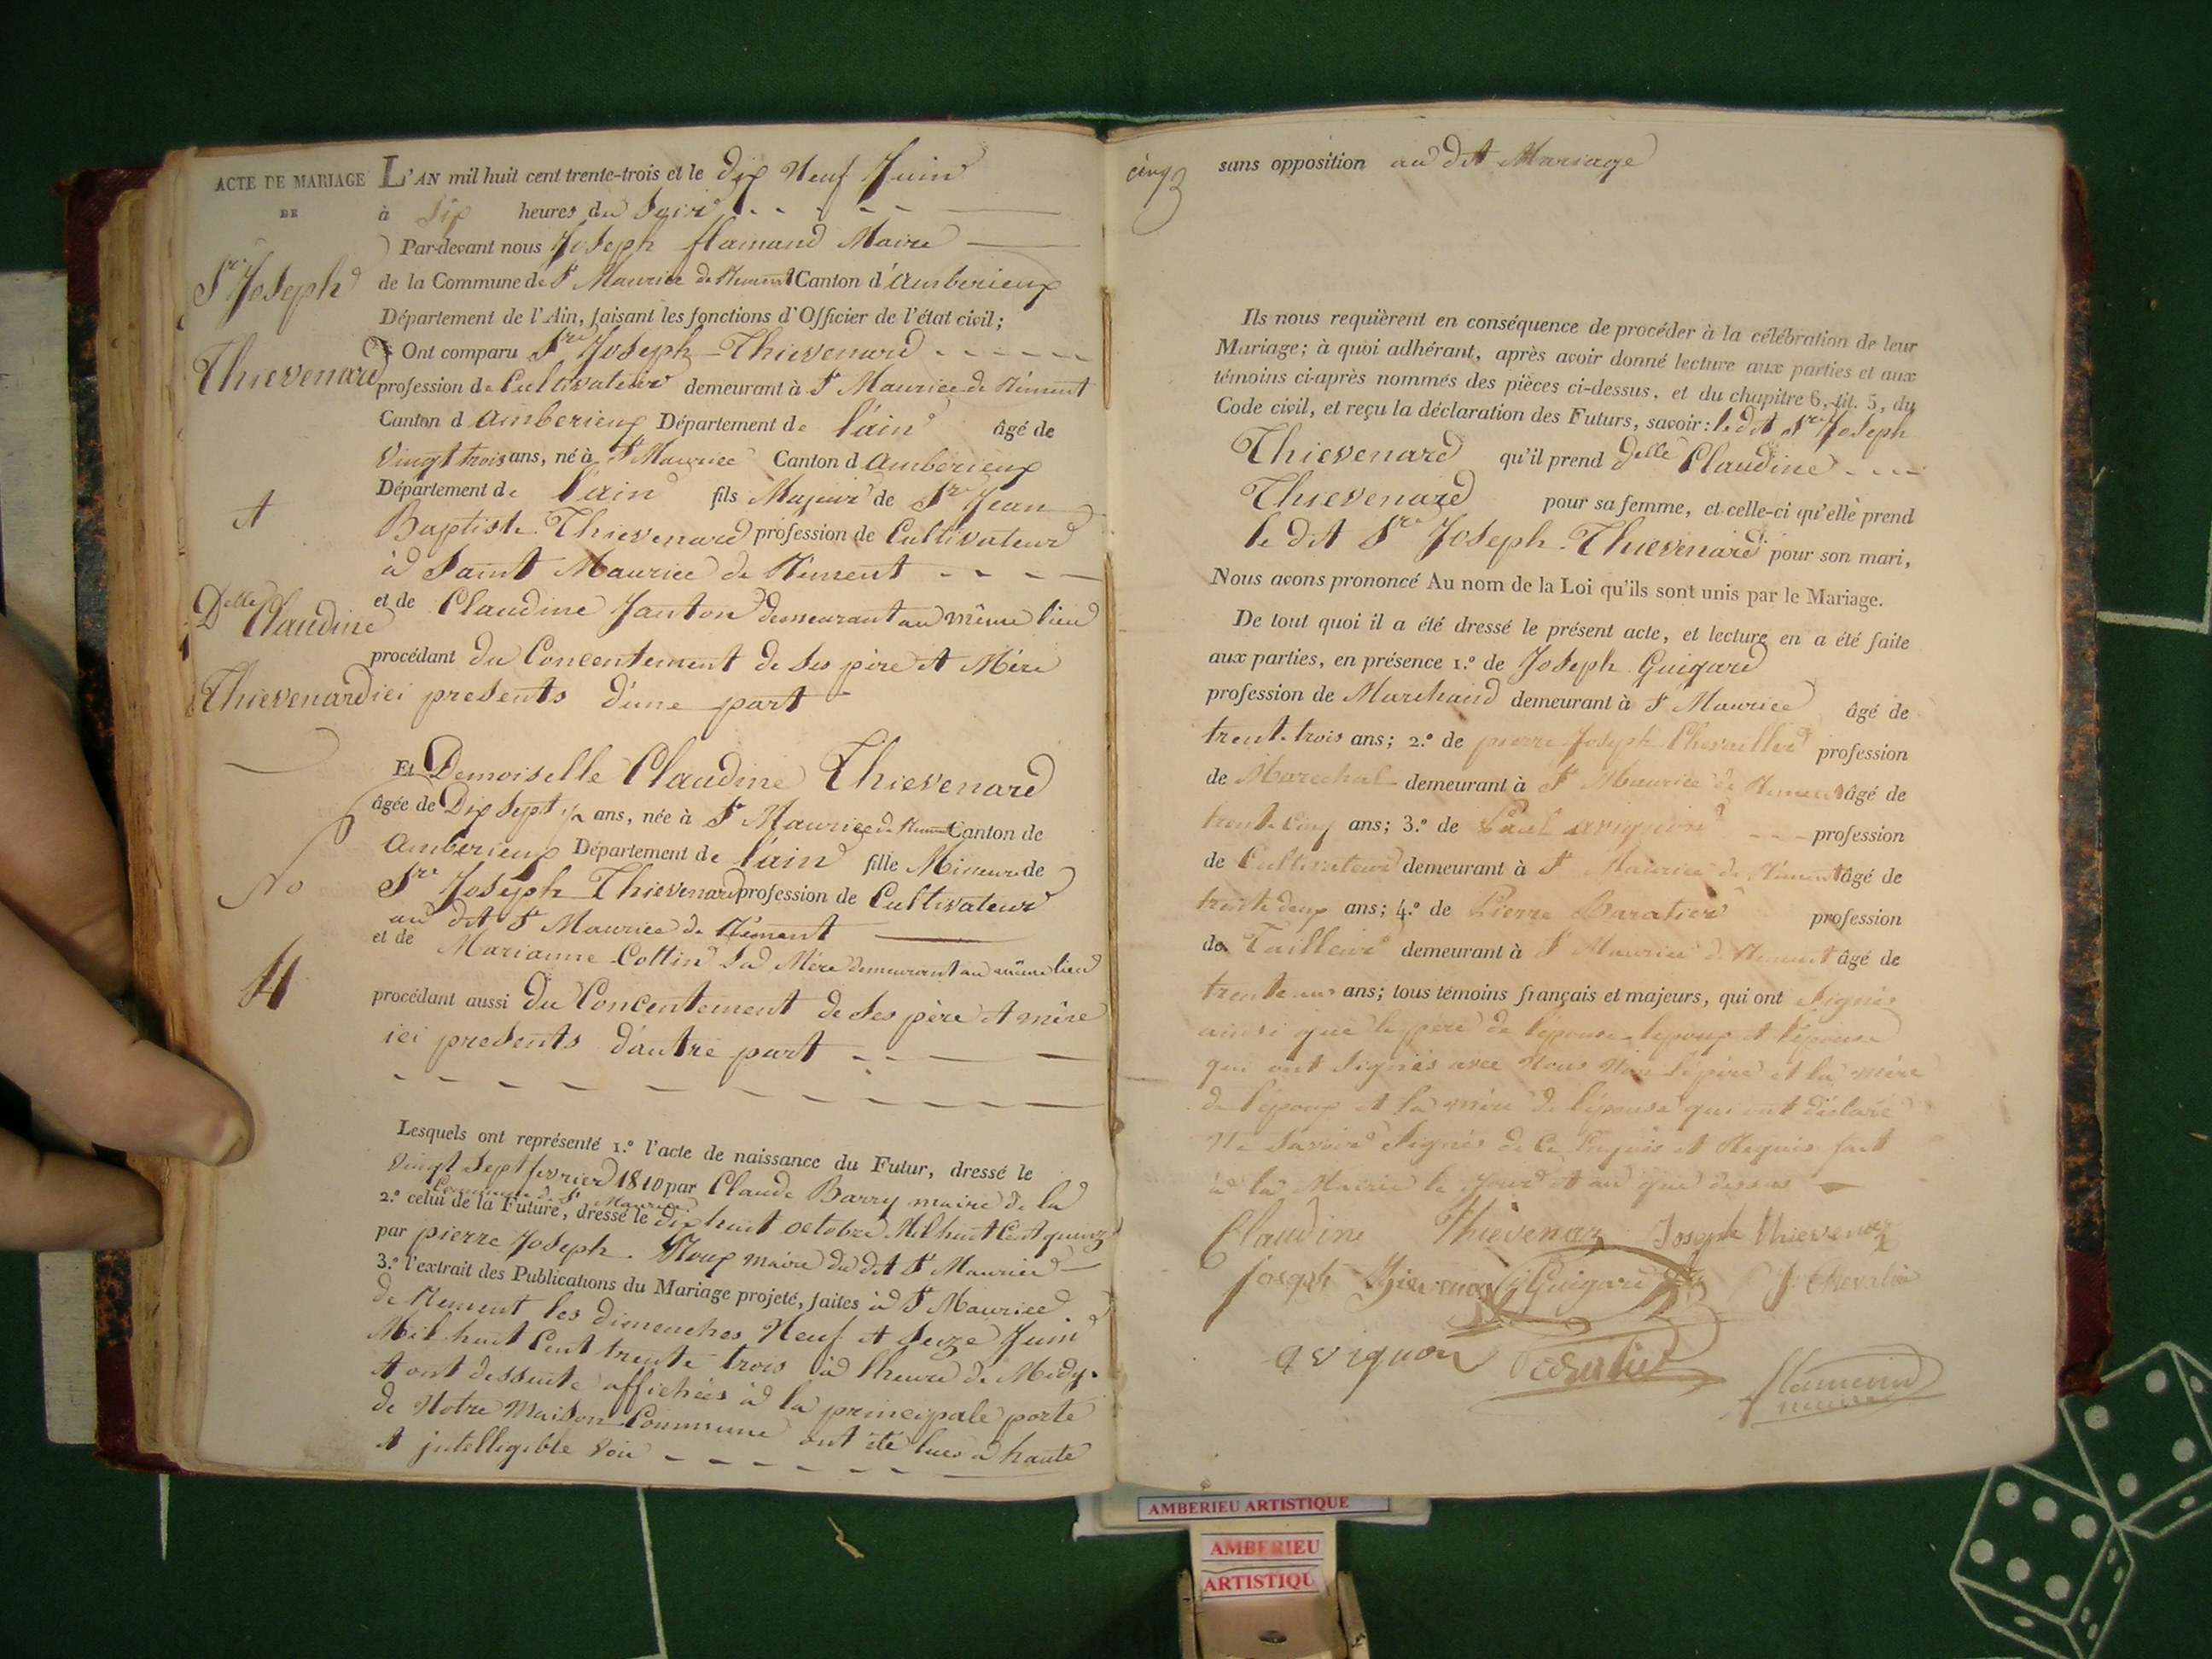 ACTE DE MARIAGE
DE
Sr Joseph
Thievenard
et
Delle
Claudine
Thievenard
No
4
L'AN mil huit cent trente-trois et le dix Neuf Juin
à Six heures du Soir
Par-devant nous Joseph flamand Maire
de la Commune de St Maurice de Rement Canton d'amberieux
Département de l'Ain, faisant les fonctions d'Officier de l'état civil;
Ont comparu Sr Joseph Thievenard
profession de Cultivateur demeurant à St Maurice de Rément
Canton d amberieux Département de l'ain âgé de
Vingt trois ans, né à St Maurice Canton d amberieux
Département de l'ain fils Majeur de Sr Jean
Baptiste Thievenard profession de Cultivateur
à Saint Maurice de Rement
et de Claudine Janton demeurant au même lieu
procédant du Concentement de Ses père et Mère
ici presents d'une part
Et Demoiselle Claudine Thievenard
âgée de Dix Sept ans, née à St Maurice de Rement Canton de
Amberieux Département de l'ain fille Mineure de
Sr Joseph Thievenard profession de Cultivateur
au dit St Maurice de Rément
et de Marianne Cottin Sa Mère demeurant au même lieu
procédant aussi du Concentement de Ses père et mère
ici presents d'autre part
Lesquels ont représenté 1.º l'acte de naissance du Futur, dressé le
vingt Sept fevrier 1810 par Claude Barry maire de la
Commune de St Maurice
2.º celui de la Future, dressé le dix huit octobre Mil huit Cent quinze
par pierre Joseph Roux maire du dit St Maurice
3.º l'extrait des Publications du Mariage projeté, faites à St Maurice
de Rement les dimenches Neuf et Seize Juin
Mil huit Cent trente trois à l'heure de Midy.
et ont dessuite affichées à la principale porte
de Notre Maison Commune ont été lues à haute
et intelligible Voix
cinq
sans opposition au dit Mariage
Ils nous requièrent en conséquence de procéder à la célébration de leur
Mariage; à quoi adhérant, après avoir donné lecture aux parties et aux
témoins ci-après nommés des pièces ci-dessus, et du chapitre 6, tit. 5, du
Code civil, et reçu la déclaration des Futurs, savoir: le dit Sr Joseph
Thievenard qu'il prend Delle Claudine
Thievenard pour sa femme, et celle-ci qu'elle prend
le dit Sr Joseph Thievenard pour son mari,
Nous avons prononcé Au nom de la Loi qu'ils sont unis par le Mariage.
De tout quoi il a été dressé le présent acte, et lecture en a été faite
aux parties, en présence 1.º de Joseph Guigard
profession de Marchand demeurant à St Maurice âgé de
trente-trois ans; 2.º de pierre Joseph Chevallier profession
de Marechal demeurant à St Maurice de Rement âgé de
trente Cinq ans; 3.º de Paul avignon profession
de Cultivateur demeurant à St Maurice de Rement âgé de
trente deux ans; 4.º de Pierre Baratier profession
de Tailleur demeurant à St Maurice de Rement âgé de
trente ans; tous témoins français et majeurs, qui ont Signés
ainsi que le père de l'épouse l'epoux et l'épouse
qui ont Signés avec Nous Non le père et la mère
de l'époux et la mère de l'épouse qui ont déclaré
Ne Savoir Signés de Ce Enquis et Requis fait
à la Mairie le jour et an que dessus
Claudine Thievenaz Joseph Thievenaz
joseph Guigard J. Chevalier
avignon
flamand
maire
AMBERIEU ARTISTIQUE
AMBERIEU
ARTISTIQU